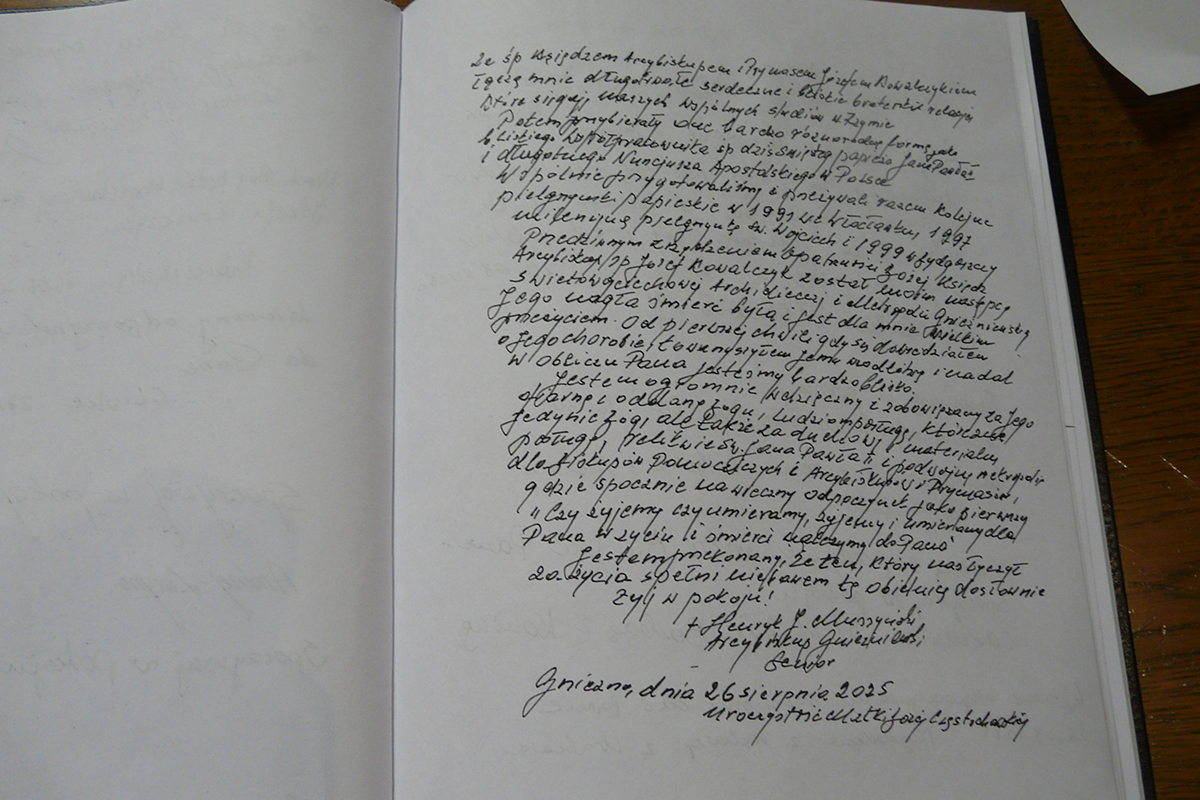 Ze śp Księdzem Arcybiskupem i Prymasem Józefem Kowalczykiem
łączą mnie długotrwałe serdeczne i braterskie relacje
które sięgają naszych wspólnych studiów w Rzymie
Potem przybierały one bardzo różnorodną formę jako
bliskiego współpracownika śp dziś świętego papieża Jana Pawła II
i długoletniego Nuncjusza Apostolskiego w Polsce
Wspólnie przygotowaliśmy i przeżywali razem kolejne
pielgrzymki papieskie w 1991 we Włocławku, 1997
milenijną pielgrzymkę św. Wojciech i 1999 w Bydgoszczy
Przedziwnym zrządzeniem Opatrzności Bożej Ksiądz
Arcybiskup śp Józef Kowalczyk został moim następcą
świętowojciechowej Archidiecezji i Metropolii Gnieźnieńskiej
Jego nagła śmierć była i jest dla mnie wielkim
przeżyciem. Od pierwszej chwili gdy się dowiedziałem
o Jego chorobie, towarzyszyłem Jemu modlitwą i nadal
w obliczu Pana jesteśmy bardzo blisko.
Jestem ogromnie wdzięczny i zobowiązany za Jego
ofiarną i oddaną Bogu, ludziom posługę,
jedynie Bogu, ale także za duchową i materialną
posługę, relikwie św. Jana Pawła II i
dla Biskupów Pomocniczych i Arcybiskupów i Prymasów,
gdzie spocznie na wieczny odpoczynek jako pierwszy
"Czy żyjemy czy umieramy, żyjemy i umieramy dla
Pana w życiu i śmierci należymy do Pana"
Jestem przekonany, że ten, który nas łączył
za życia spełni niebawem tę obietnicę dosłownie
Żyj w pokoju!
+ Henryk J. Muszyński
Arcybiskup Gnieźnieński
Senior
Gniezno, dnia 26 sierpnia 2025
Uroczystość Matki Bożej Częstochowskiej